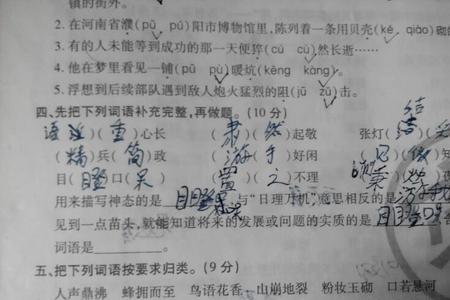 镇的街外。
2.在河南省濮(pǔ pú)阳市博物馆里,陈列着一条用贝壳(ké qiào)砌
3.有的人未能等到成功的那一天便猝(cù cuì)然长逝……
4.他在梦里看见一铺(pū pù)暖炕(kēng kàng)。
5.浮想到后续部队遇到敌人炮火猛烈的阻(jū zǔ)击。
四、先把下列词语补充完整,再做题。(10分)
语(重)心长 (肃)(然)起敬 张灯(结)
(精)兵(简)政 (游)手好闲
目(瞪)口(呆) (置)(之)不理
用来描写神态的是 目瞪口呆 ,与“日理万机”意思相反的是 游手
见到一点苗头,就能知道将来的发展或问题的实质的是 目瞪口呆
词语是
五、把下列词语按要求归类。(9分)
人声鼎沸 蜂拥而至 鸟语花香 山崩地裂 粉妆玉砌 口若悬河